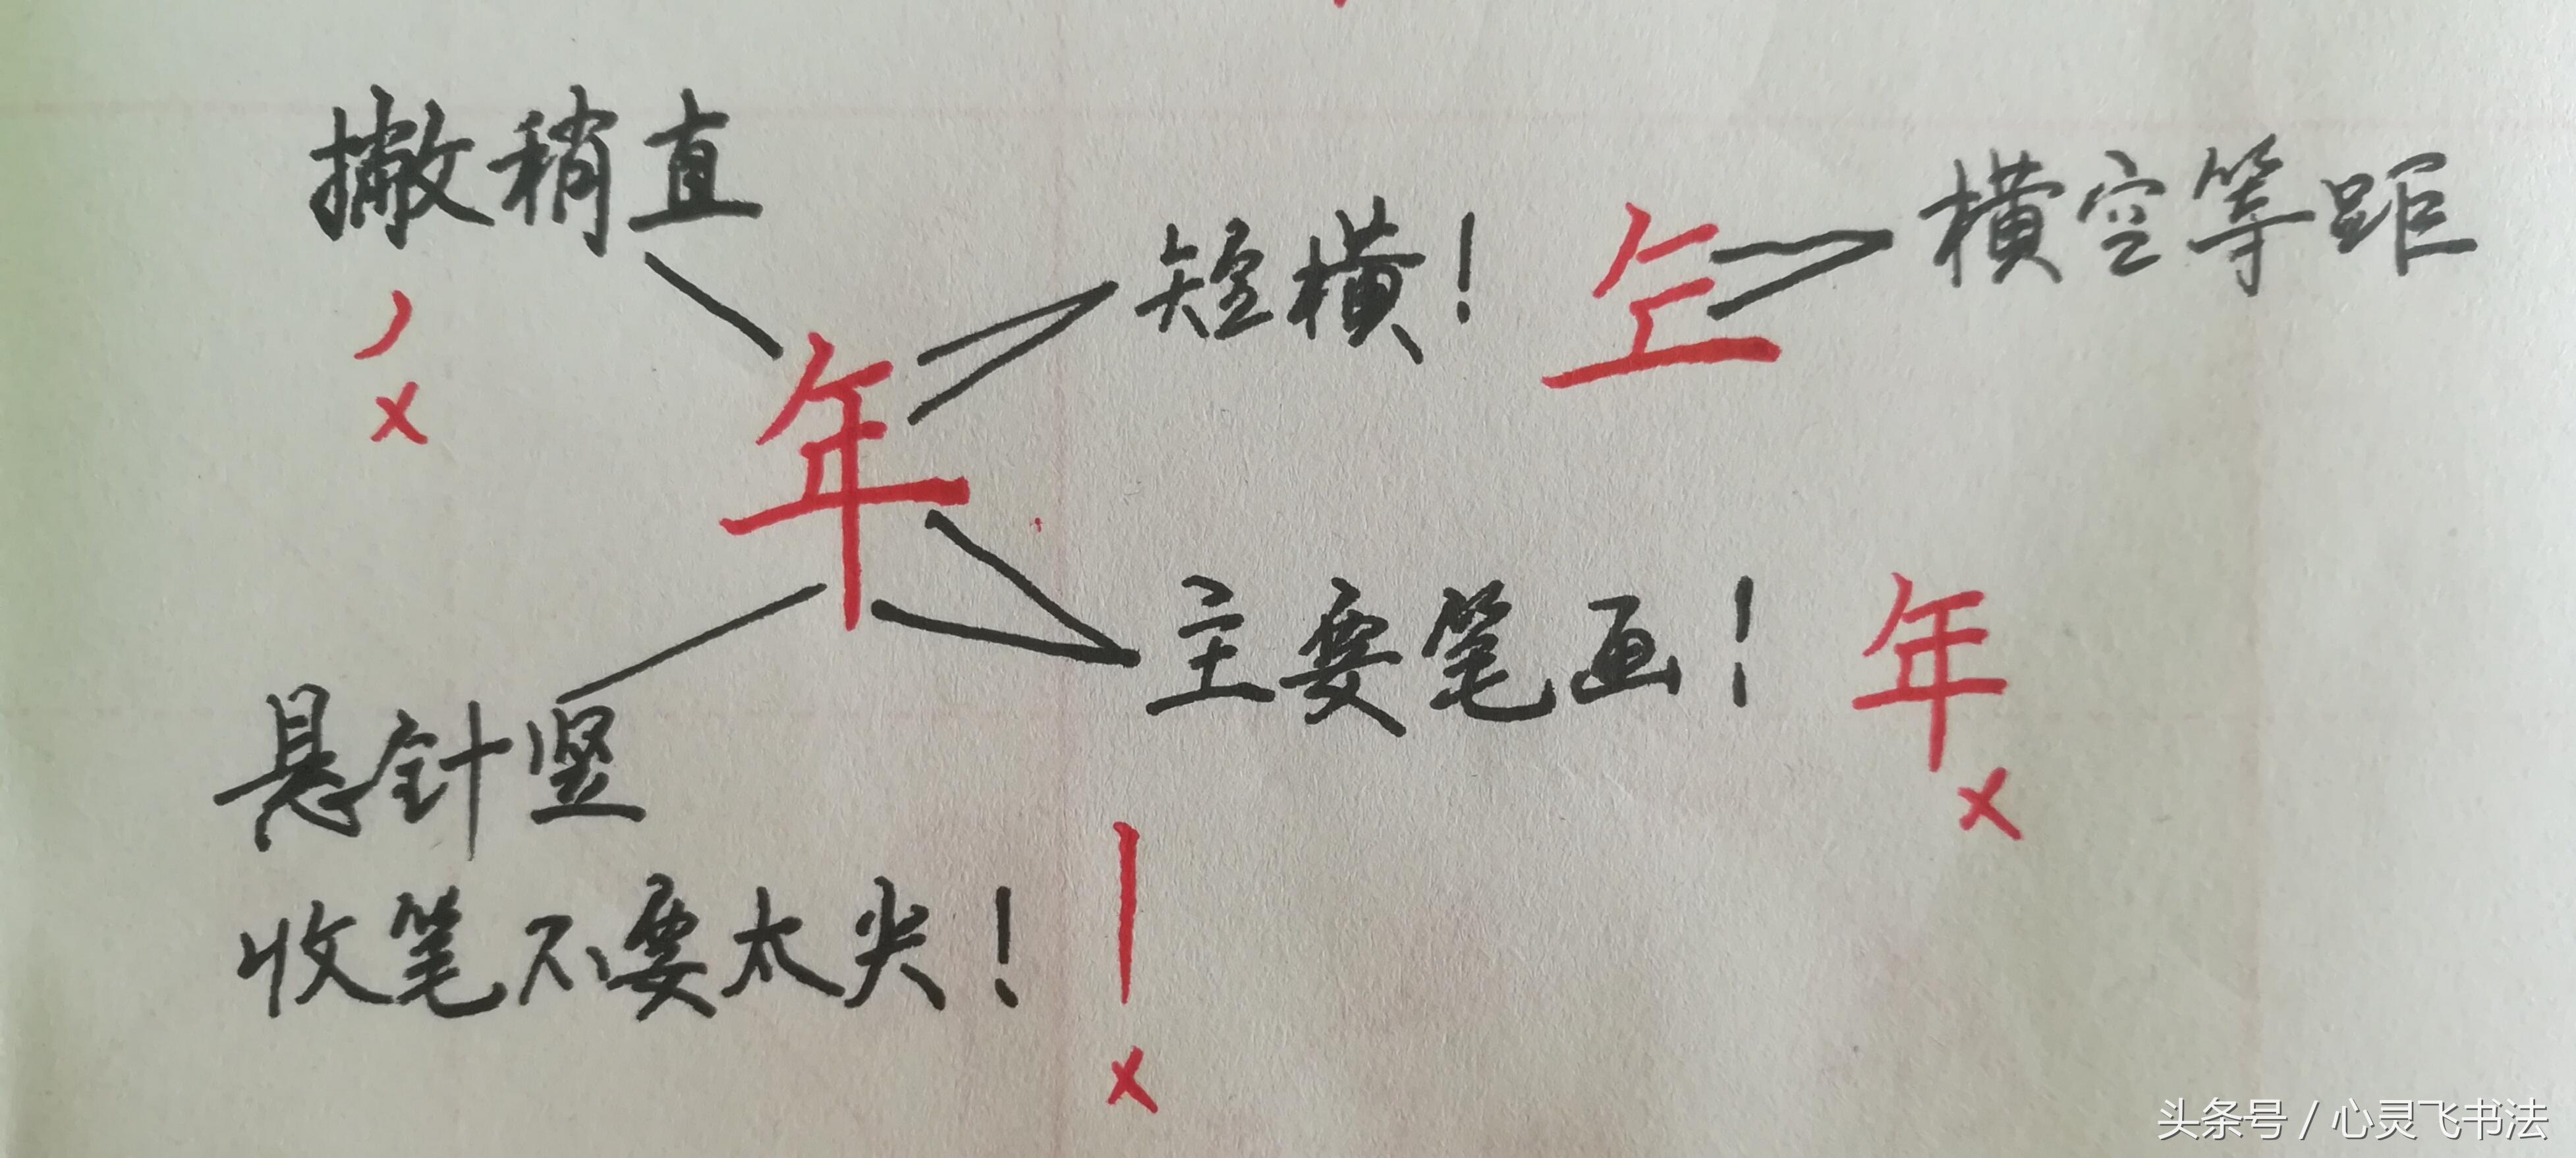 撇稍直
短横！
横空等距
年
主要笔画！
年
x
x
悬针竖
收笔不要太尖！
x
头条号 / 心灵飞书法